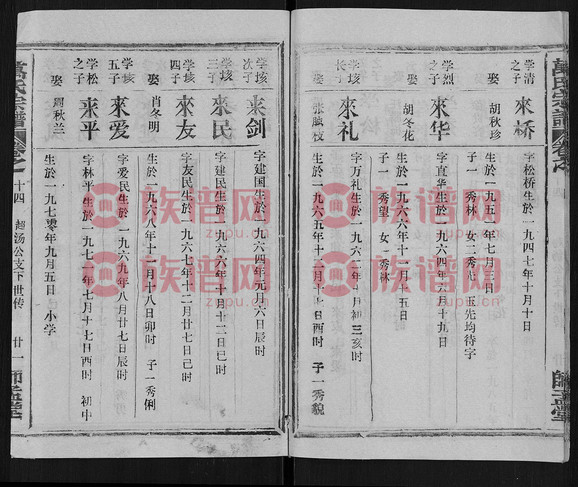 萬氏宗譜
学清之子
來桥
字松桥生於一九四七年十月十日
娶
胡秋珍
生於一九五一年七月三日
子一 秀林 女二 秀 玉先均待字
学烈之子
來华
字直华生於一九六四年六月十九日
娶
胡冬花
生於一九六六年十二月十五日
子一 秀望 女一 秀林
学垓长子
來礼
字万礼生於一九六二年十月初三亥时
娶
张
枝
生於一九六五年十二月
日酉时 子一秀貌
師孟堂
学垓次子
來剑
字建国生於一九六四年元月六日辰时
学垓三子
來民
字建民生於一九六六年十月十二日已时
学垓四子
來友
字友民生於一九六七年十二月廿七日已时
娶
肖冬明
生於一九六八年十二月十八日卯时 子一秀俐
学垓五子
來爱
字爱民生於一九六九年八月廿七日辰时
学松之子
來平
字林平生於一九七一年七月十七日酉时 初中
娶
周秋兰
生於一九七零年九月五日 小学
萬氏宗譜
卷之
十四
超汤公支下
世传
廿一
師孟堂
族谱网
zupu.cn
族谱网
zupu.cn